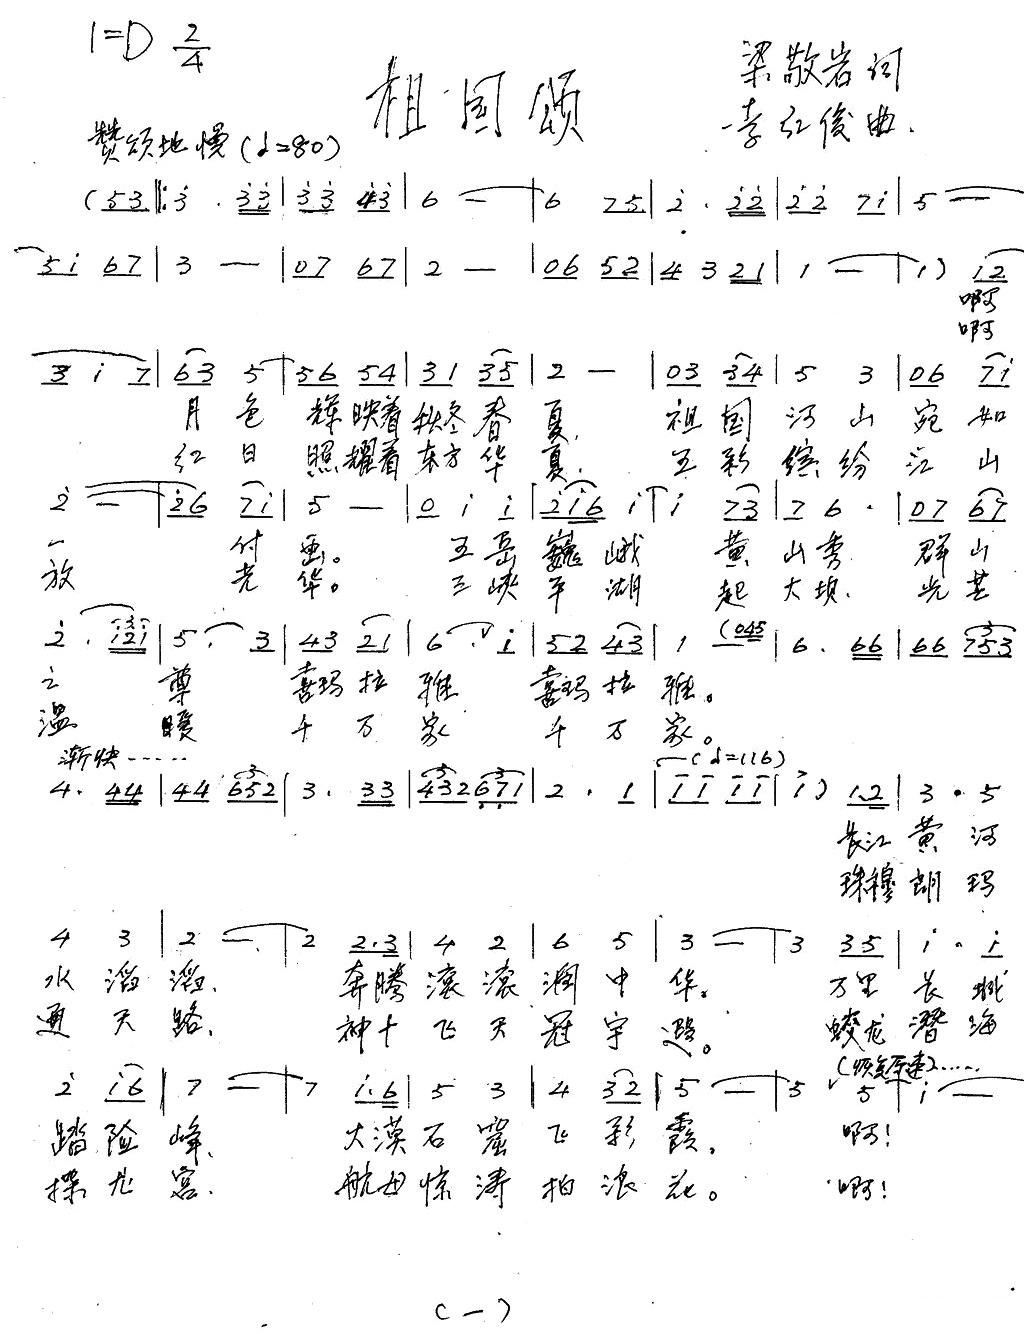 1=D 2/4
祖国颂
梁敬岩词
李红俊曲.
赞颂地慢(♩=80)
(53‖:3 . 33|33 43|6 —|6 75|2 . 22|22 71|5 —
51 67|3 —|07 67|2 —|06 52|4 3 21|1 —|1) 12
啊
啊
3 1 7|63 5|56 54|31 35|2 —|03 34|5 3|06 71
月色 辉映着秋冬春夏, 祖国河山宛如
红日 照耀着东方华夏. 五彩缤纷江山
2 —|26 71|5 —|0 1 1|216 1|1 73|7 6 .|07 67
一 付画。 五岳巍峨 黄山秀. 群山
放 光华。 三峡平湖 起大坝. 光芒
2 . 121|5 . 3|43 21|6 . ∨ 1|52 43|1 (045|6 . 66|66 753
之 尊 喜玛拉雅 喜玛拉雅。
温 暖 千万家 千万家。
渐快……
(♩=116)
4 . 44|44 652|3 . 33|432 671|2 . 1|11 11|1) 1.2|3 . 5
长江黄河
珠穆朗玛
4 3|2 —|2 2.3|4 2|6 5|3 —|3 35|1 . 1
水滔滔, 奔腾滚滚润中华。 万里长城
通天路, 神十飞天冠宇遐。 蛟龙潜海
2 16|7 —|7 1.6|5 3|4 32|5 —|5 ∨ 5|1 —
踏险峰, 大漠石窟飞彩霞, 啊!
探龙宫. 航母惊涛拍浪花。 啊!
(一)